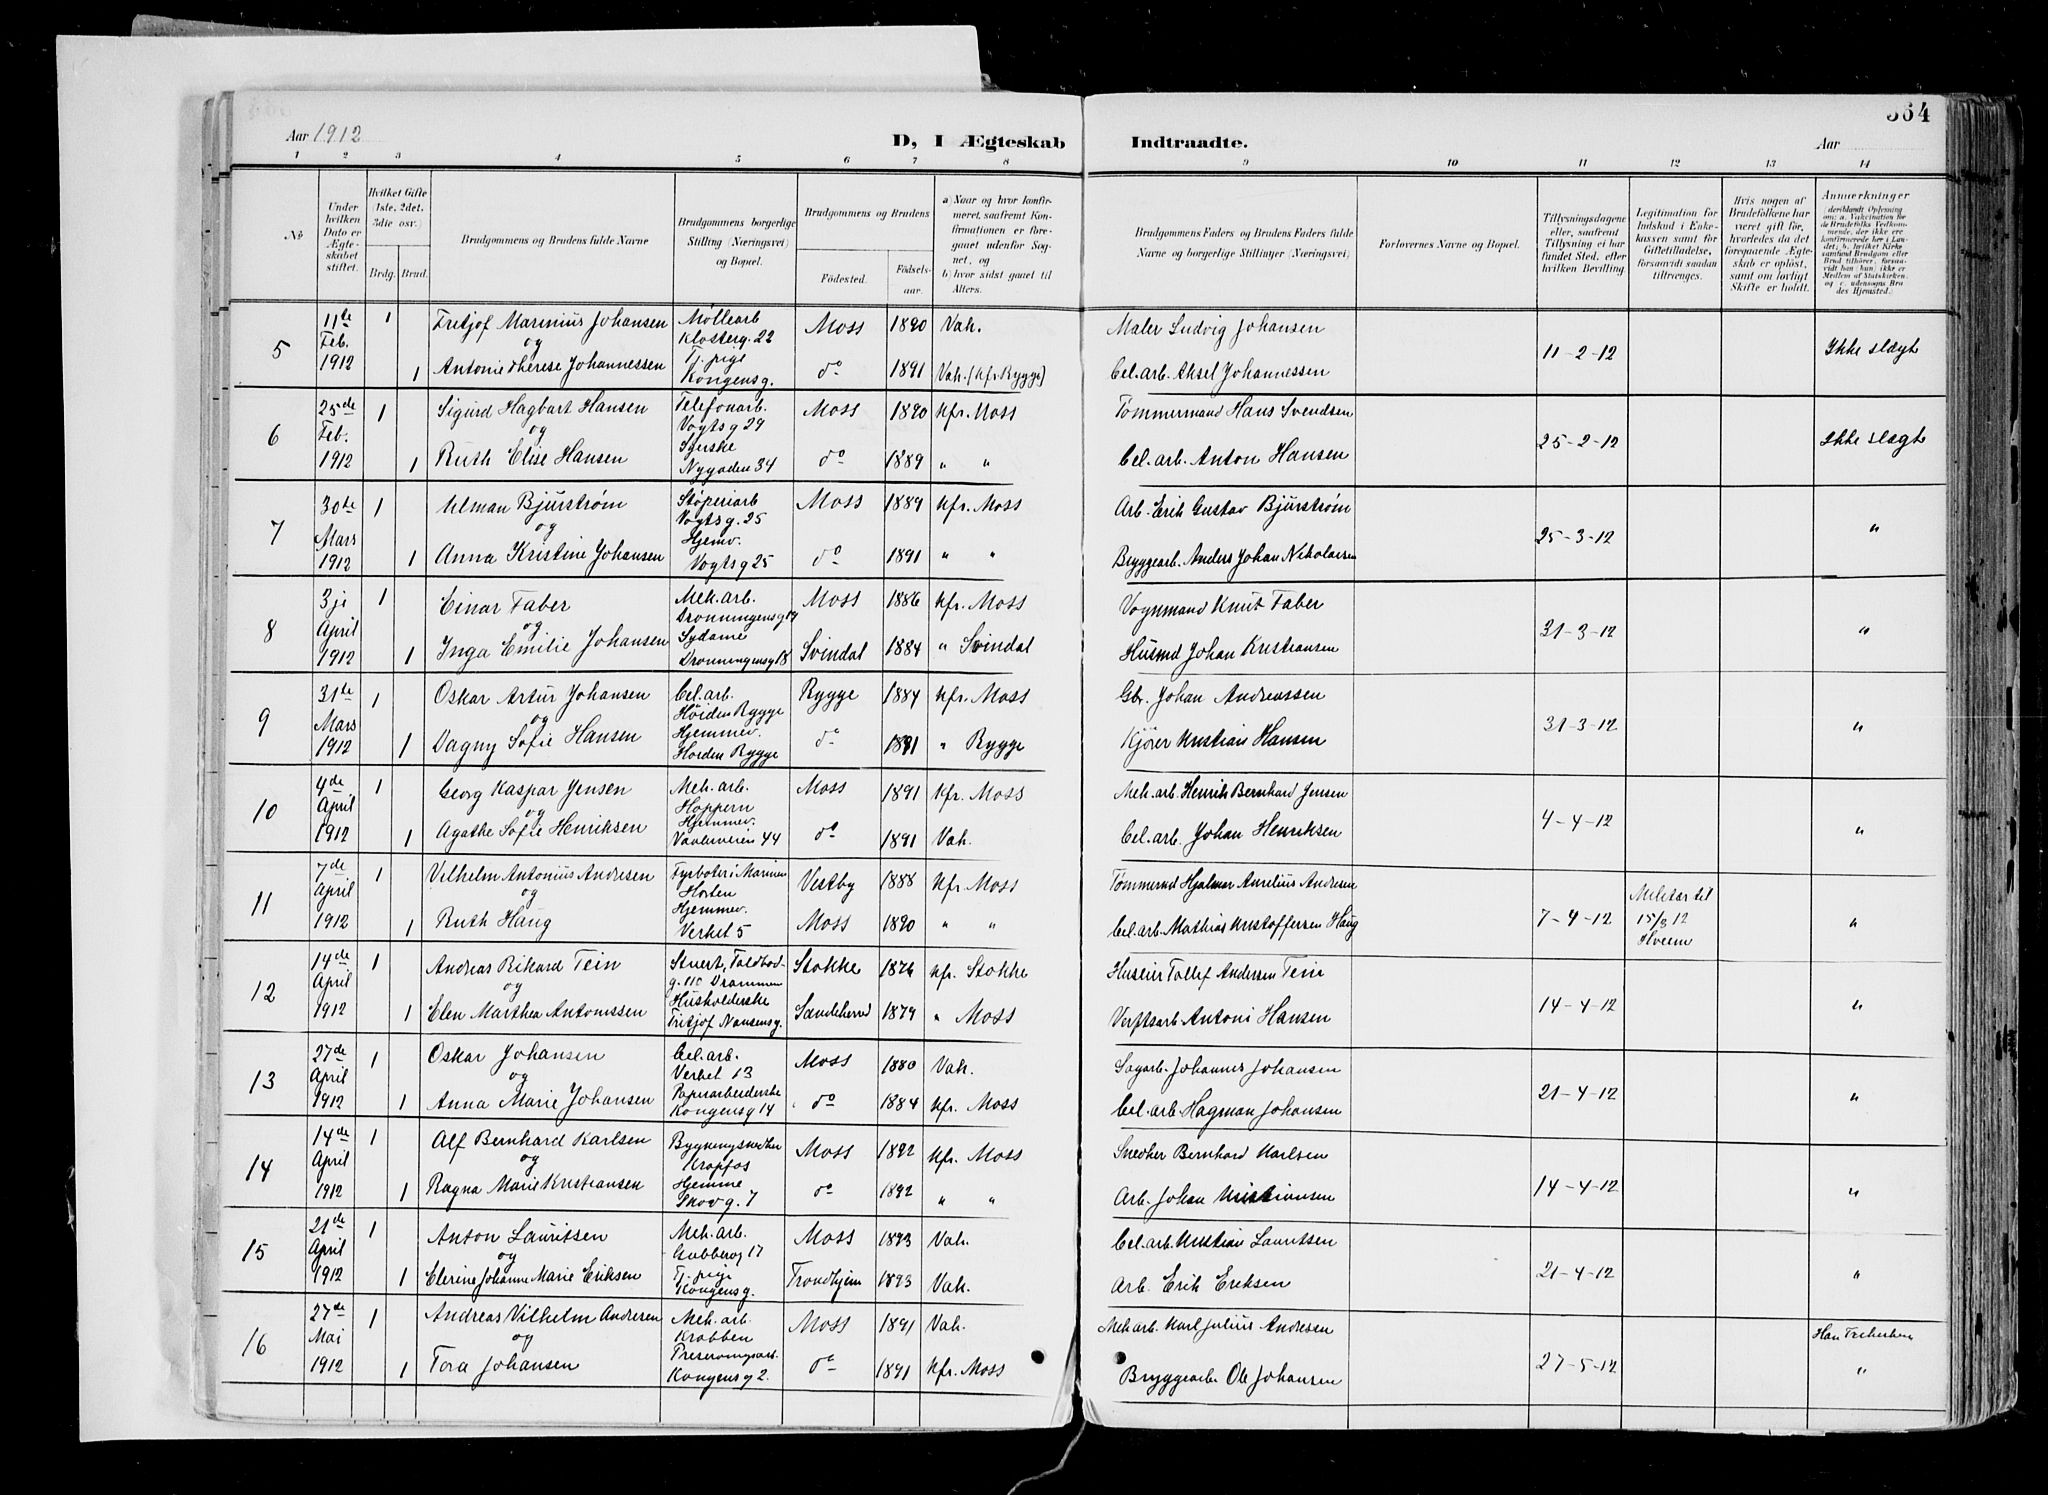 364
Aar 1912
D, I Ægteskab Indtraadte.
Aar
1 2 3 4 5 6 7 8 9 10 11 12 13 14
No
Under hvilken Dato er Ægteskabet stiftet.
Hvilket Gifte (1ste, 2det, 3die osv.)
Brdg. Brud.
Brudgommens og Brudens fulde Navne
Brudgommens borgerlige Stilling (Næringsvei) og Bopæl.
Brudgommens og Brudens
Fødested. Fødselsaar.
a) Naar og hvor konfirmeret, saafremt Konfirmationen er foregaaet udenfor Sognet, og
b) hvor sidst gaaet til Alters.
Brudgommens Faders og Brudens Faders fulde Navne og borgerlige Stillinger (Næringsvei)
Forlovernes Navne og Bopæl.
Tillysningsdagene eller, saafremt Tillysning ei har fundet Sted, efter hvilken Bevilling.
Legitimation for Indskud i Enkekassen samt for Giftetilladelse, forsaavidt saadan tiltrænges.
Hvis nogen af Brudefolkene har været gift før, hvorledes da det foregaaende Ægteskab er opløst, samt om lovligt Skifte er holdt.
Anmærkninger
5
11te Feb. 1912 1 Fritjof Marinius Johansen Møllearb Klosterg. 22 Moss 1890 Vah. Maler Ludvig Johansen 11-2-12 Ikke slægt
og
1 Antonie Therese Johannessen Tj. pige Kongensg. do 1891 Vah. (Kfr Rygge) Cel. arb. Aksel Johannessen
6
25de Feb. 1912 1 Sigurd Hagbart Hansen Telefonarb. Vogtsg 29 Moss 1890 Kfr. Moss Tømmermand Hans Svendsen 25-2-12 Ikke slægt
og
1 Ruth Elise Hansen Syerske Nygaden 34 do 1889 " " Cel. arb. Anton Hansen
7
30te Mars 1912 1 Ulman Bjurstrøm Støperiarb Vogtsg. 25 Moss 1889 Kfr. Moss Arb. Erik Gustav Bjurstrøm 25-3-12 "
og
1 Anna Kristine Johansen Hjemv. Vogtsg 25 do 1891 " " Bryggearb. Anders Johan Nikolaisen
8
3je April 1912 1 Einar Faber Mek. arb. Dronningensg 19 Moss 1886 Kfr. Moss Vognmand Knut Faber 31-3-12 "
og
1 Inga Emilie Johansen Sydame Dronningensg 18 Svindal 1884 " Svindal Husmd Johan Kristiansen
9
31te Mars 1912 1 Oskar Artur Johansen Cel. arb. Høiden Rygge Rygge 1884 Kfr. Moss Gbr. Johan Andreassen 31-3-12 "
og
1 Dagny Sofie Hansen Hjemmev. Rygge do 1891 " Rygge Kjører Kristian Hansen
10
4de April 1912 1 Georg Kaspar Jensen Mek. arb. Hoppern Moss 1891 Kfr. Moss Mek. arb. Henrik Bernhard Jensen 4-4-12 "
og
1 Agathe Sofie Henriksen Hjemmev. Vaalerveien 44 do 1891 Vah. Cel. arb. Johan Henriksen
11
7de April 1912 1 Vilhelm Antonius Andresen Fyrbøter i Marinen Horten Vestby 1888 Kfr. Moss Tømmermd Hjalmar Aurelius Andresen 7-4-12 15/3 12 "
og
1 Ruth Haug Hjemmev. Verket 5 Moss 1890 " " Cel. arb. Mathias Kristoffersen Haug
12
14de April 1912 1 Andreas Rikard Tein Stuert, Toldbodg. 110 Drammen Stokke 1876 Kfr. Stokke Huseier Tollef Andersen Tein 14-4-12 "
og
1 Elen Marthea Antonissen Husholderske Fritjof Nansensg. Sandeherred 1879 " Moss Verftsarb Antoni Hansen
13
27de April 1912 1 Oskar Johansen Cel. arb. Verket 13 Moss 1880 Vah. Sagarb. Johannes Johansen 21-4-12 "
og
1 Anna Marie Johansen Papirarbeiderske Kongensg 14 do 1884 Kfr. Moss Cel. arb Hagman Johansen
14
14de April 1912 1 Alf Bernhard Karlsen Krapfos Moss 1892 Kfr. Moss Snedker Bernhard Karlsen 14-4-12 "
og
1 Ragna Marie Kristiansen Hjemme Skovg. 7 do 1892 " " Arb. Johan Kristiansen
15
21de April 1912 1 Anton Lauritsen Mek. arb. Gubberog 17 Moss 1893 Vah. Cel. arb. Kristian Lauritsen 21-4-12 "
og
1 Elerine Johanne Marie Eriksen Tj. pige Kongensg. Trondhjem 1893 Vah. Arb. Erik Eriksen
16
27de Mai 1912 1 Andreas Vilhelm Andresen Mek. arb. Krabben Moss 1891 Vah. Mek arb. Karl Julius Andresen 27-5-12 Han
og
1 Tora Johansen Kongensg 2. do 1891 Kfr. Moss Bryggearb Ole Johansen "